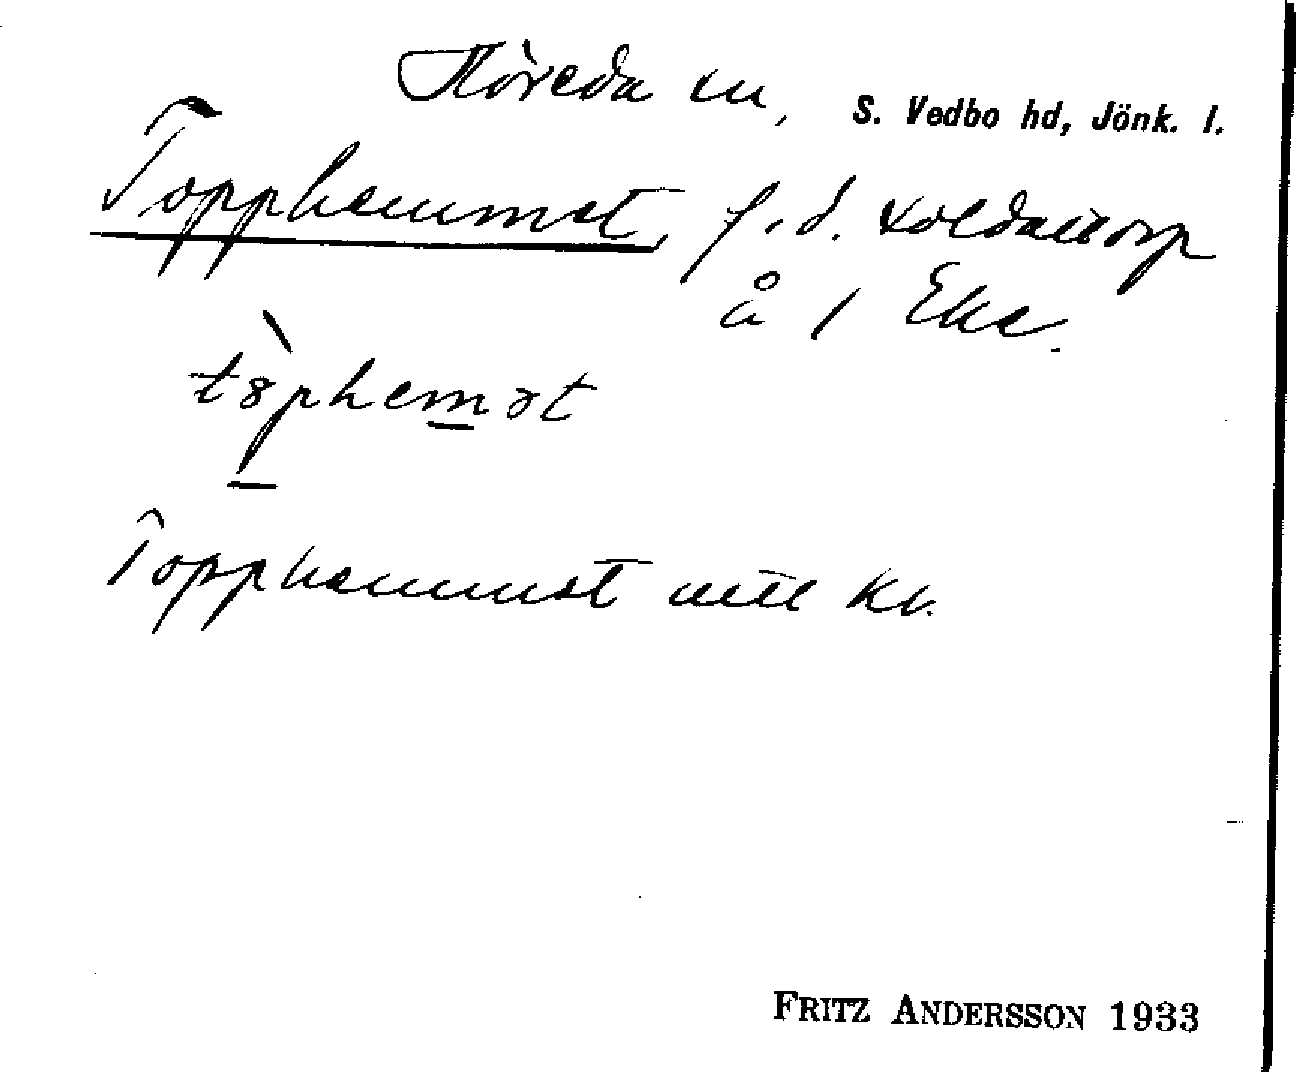 Höreda sn, S. Vedbo hd, Jönk. l.
Topphemmet, f.d. soldattorp
å 1 Eke.
tòphemət
Topphemmet uttl kr.
FRITZ ANDERSSON 1933